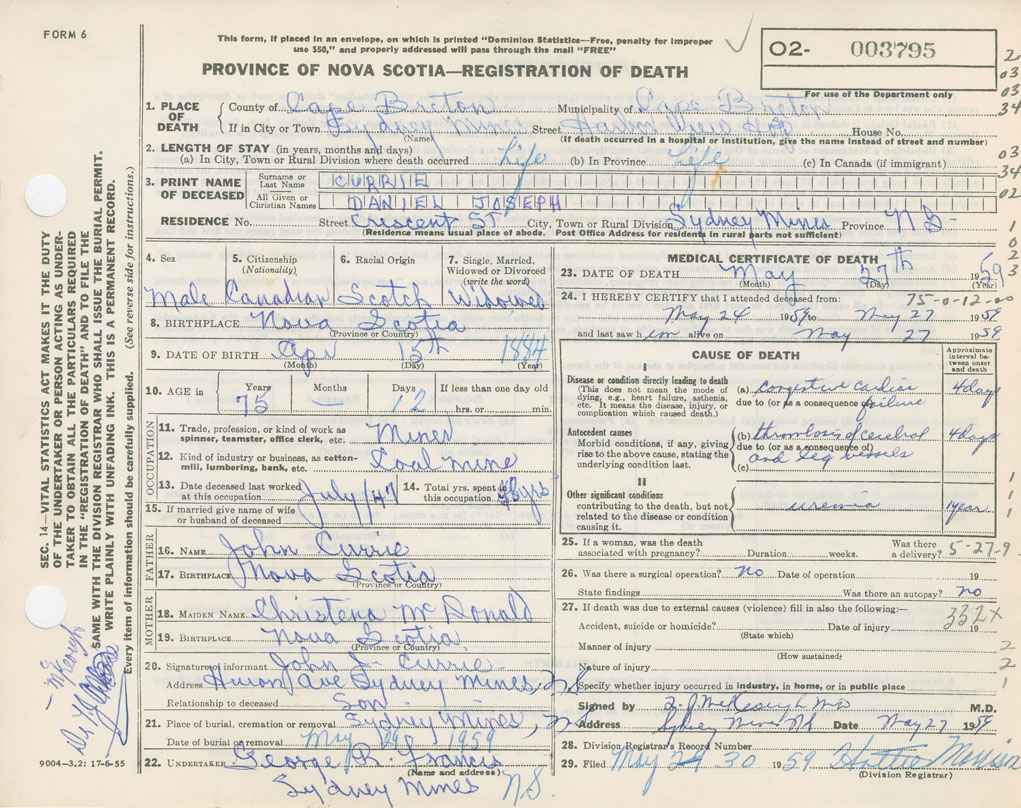 FORM 6
This form, if placed in an envelope, on which is printed "Dominion Statistics—Free, penalty for improper
use $50," and properly addressed will pass through the mail "FREE"
PROVINCE OF NOVA SCOTIA—REGISTRATION OF DEATH
O2- 003795
For use of the Department only
2
03
03
34
03
34
02
1
0
2
3
1. PLACE OF DEATH
County of Cape Breton Municipality of Cape Breton
If in City or Town Sydney Mines Street Harbor View Hosp House No.
(Name) (If death occurred in a hospital or institution, give the name instead of street and number)
2. LENGTH OF STAY (in years, months and days)
(a) In City, Town or Rural Division where death occurred Life (b) In Province Life (c) In Canada (if immigrant)
3. PRINT NAME OF DECEASED
Surname or Last Name CURRIE
All Given or Christian Names DANIEL JOSEPH
RESIDENCE No. Street Crescent St City, Town or Rural Division Sydney Mines Province N S
(Residence means usual place of abode. Post Office Address for residents in rural parts not sufficient)
4. Sex
Male
5. Citizenship (Nationality)
Canadian
6. Racial Origin
Scotch
7. Single, Married, Widowed or Divorced (write the word)
Widowed
8. BIRTHPLACE Nova Scotia
(Province or Country)
9. DATE OF BIRTH Apr 15th 1884
(Month) (Day) (Year)
10. AGE in
Years 75
Months —
Days 12
If less than one day old
hrs. or min.
OCCUPATION
11. Trade, profession, or kind of work as
spinner, teamster, office clerk, etc. Miner
12. Kind of industry or business, as cotton-
mill, lumbering, bank, etc. Coal mine
13. Date deceased last worked
at this occupation July/47
14. Total yrs. spent in
this occupation yrs
15. If married give name of wife
or husband of deceased
FATHER
16. NAME John Currie
17. BIRTHPLACE Nova Scotia
(Province or Country)
MOTHER
18. MAIDEN NAME Christena McDonald
19. BIRTHPLACE Nova Scotia
(Province or Country)
20. Signature of informant John J. Currie
Address Huron Ave Sydney Mines, NS
Relationship to deceased Son
21. Place of burial, cremation or removal Sydney Mines, NS
Date of burial or removal May 29 1959
22. UNDERTAKER George R. Francis
(Name and address)
Sydney Mines N.S.
9004-3.2: 17-6-55
MEDICAL CERTIFICATE OF DEATH
23. DATE OF DEATH May 27th 1959
(Month) (Day) (Year)
24. I HEREBY CERTIFY that I attended deceased from: 75-0-12-00
May 24 1959 to May 27 1959
and last saw him alive on May 27 1959
CAUSE OF DEATH
Approximate interval between onset and death
I
Disease or condition directly leading to death
(This does not mean the mode of
dying, e.g., heart failure, asthenia,
etc. It means the disease, injury, or
complication which caused death.)
(a) Congestive cardiac 4 days
due to (or as a consequence of) failure
Antecedent causes
Morbid conditions, if any, giving
rise to the above cause, stating the
underlying condition last.
(b) thrombosis of cerebral 4 days
due to (or as a consequence of)
and leg vessels
(c)
II
Other significant conditions
contributing to the death, but not
related to the disease or condition
causing it.
uremia 1 year
1
1
1
25. If a woman, was the death
associated with pregnancy? Duration weeks. Was there a delivery? 5-27-9
26. Was there a surgical operation? no Date of operation 19
State findings Was there an autopsy? no
27. If death was due to external causes (violence) fill in also the following:— 332X
Accident, suicide or homicide? Date of injury 19
(State which)
Manner of injury 2
(How sustained)
Nature of injury 2
Specify whether injury occurred in industry, in home, or in public place 1
Signed by McKeough M.D.
Address Sydney Mines NS Date May 27 1959
28. Division Registrar's Record Number
29. Filed May 30 1959 Hattie
(Division Registrar)
SEC. 14—VITAL STATISTICS ACT MAKES IT THE DUTY
OF THE UNDERTAKER OR PERSON ACTING AS UNDER-
TAKER TO OBTAIN ALL THE PARTICULARS REQUIRED
IN THE "REGISTRATION OF DEATH" AND TO FILE THE
SAME WITH THE DIVISION REGISTRAR WHO SHALL ISSUE THE BURIAL PERMIT.
WRITE PLAINLY WITH UNFADING INK. THIS IS A PERMANENT RECORD.
Every item of information should be carefully supplied. (See reverse side for instructions.)
McKeough